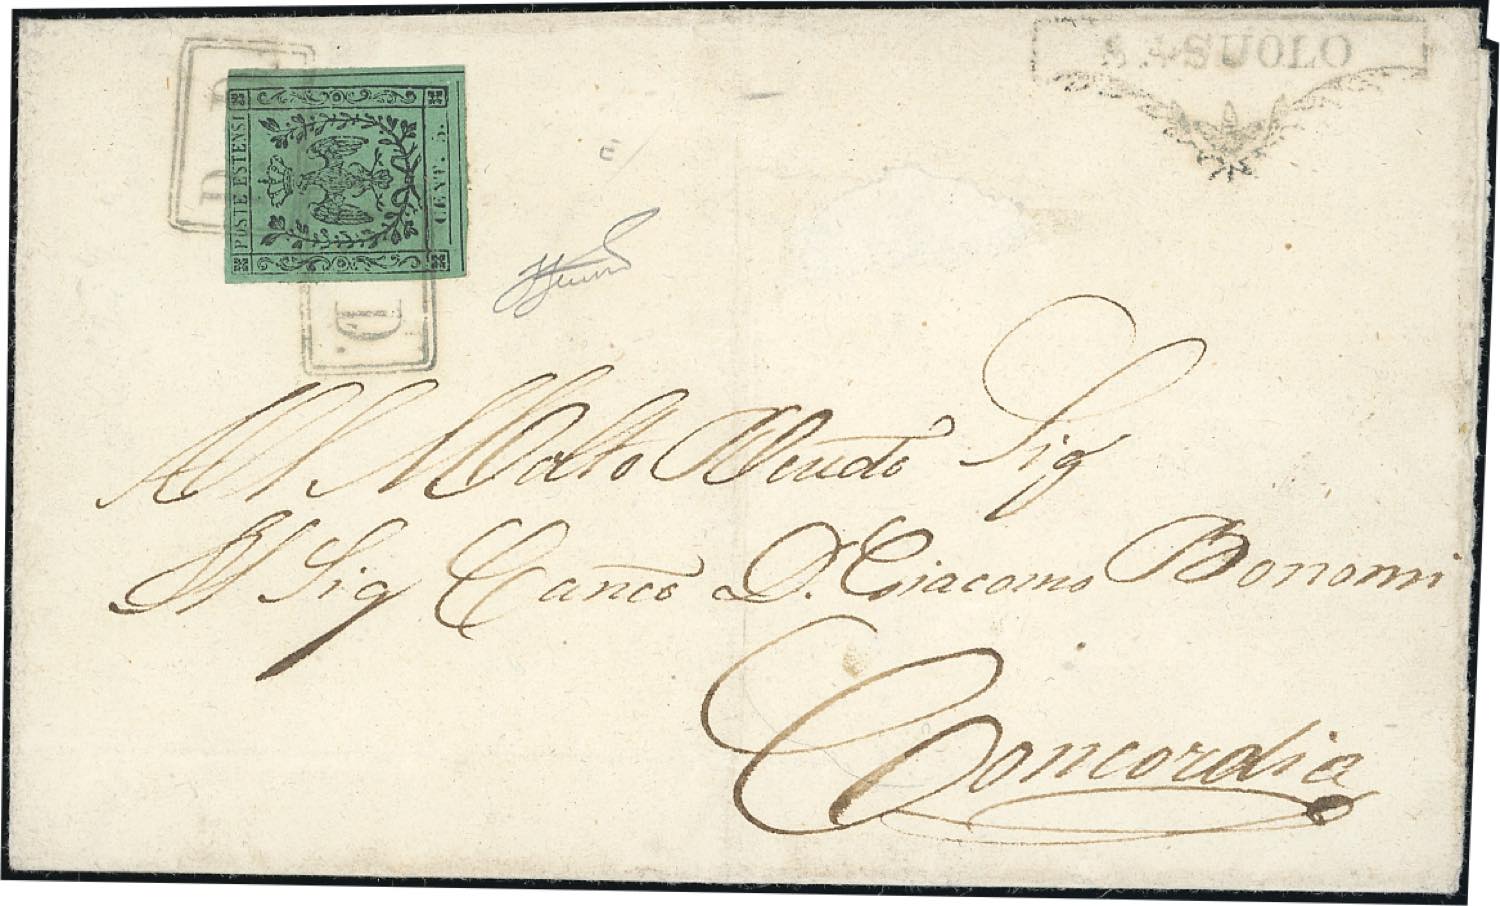 SASSUOLO
POSTE ESTENSI
CENT. 5.
P. D.
D.
All Molto Revdo Sig
Il Sig Canco D. Giacomo Bononi
Concordia